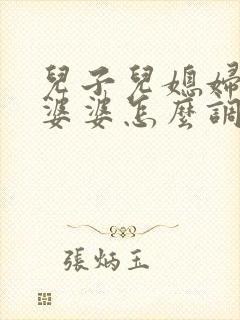 兒子兒媳婦
婆婆怎麼調
張炳玉